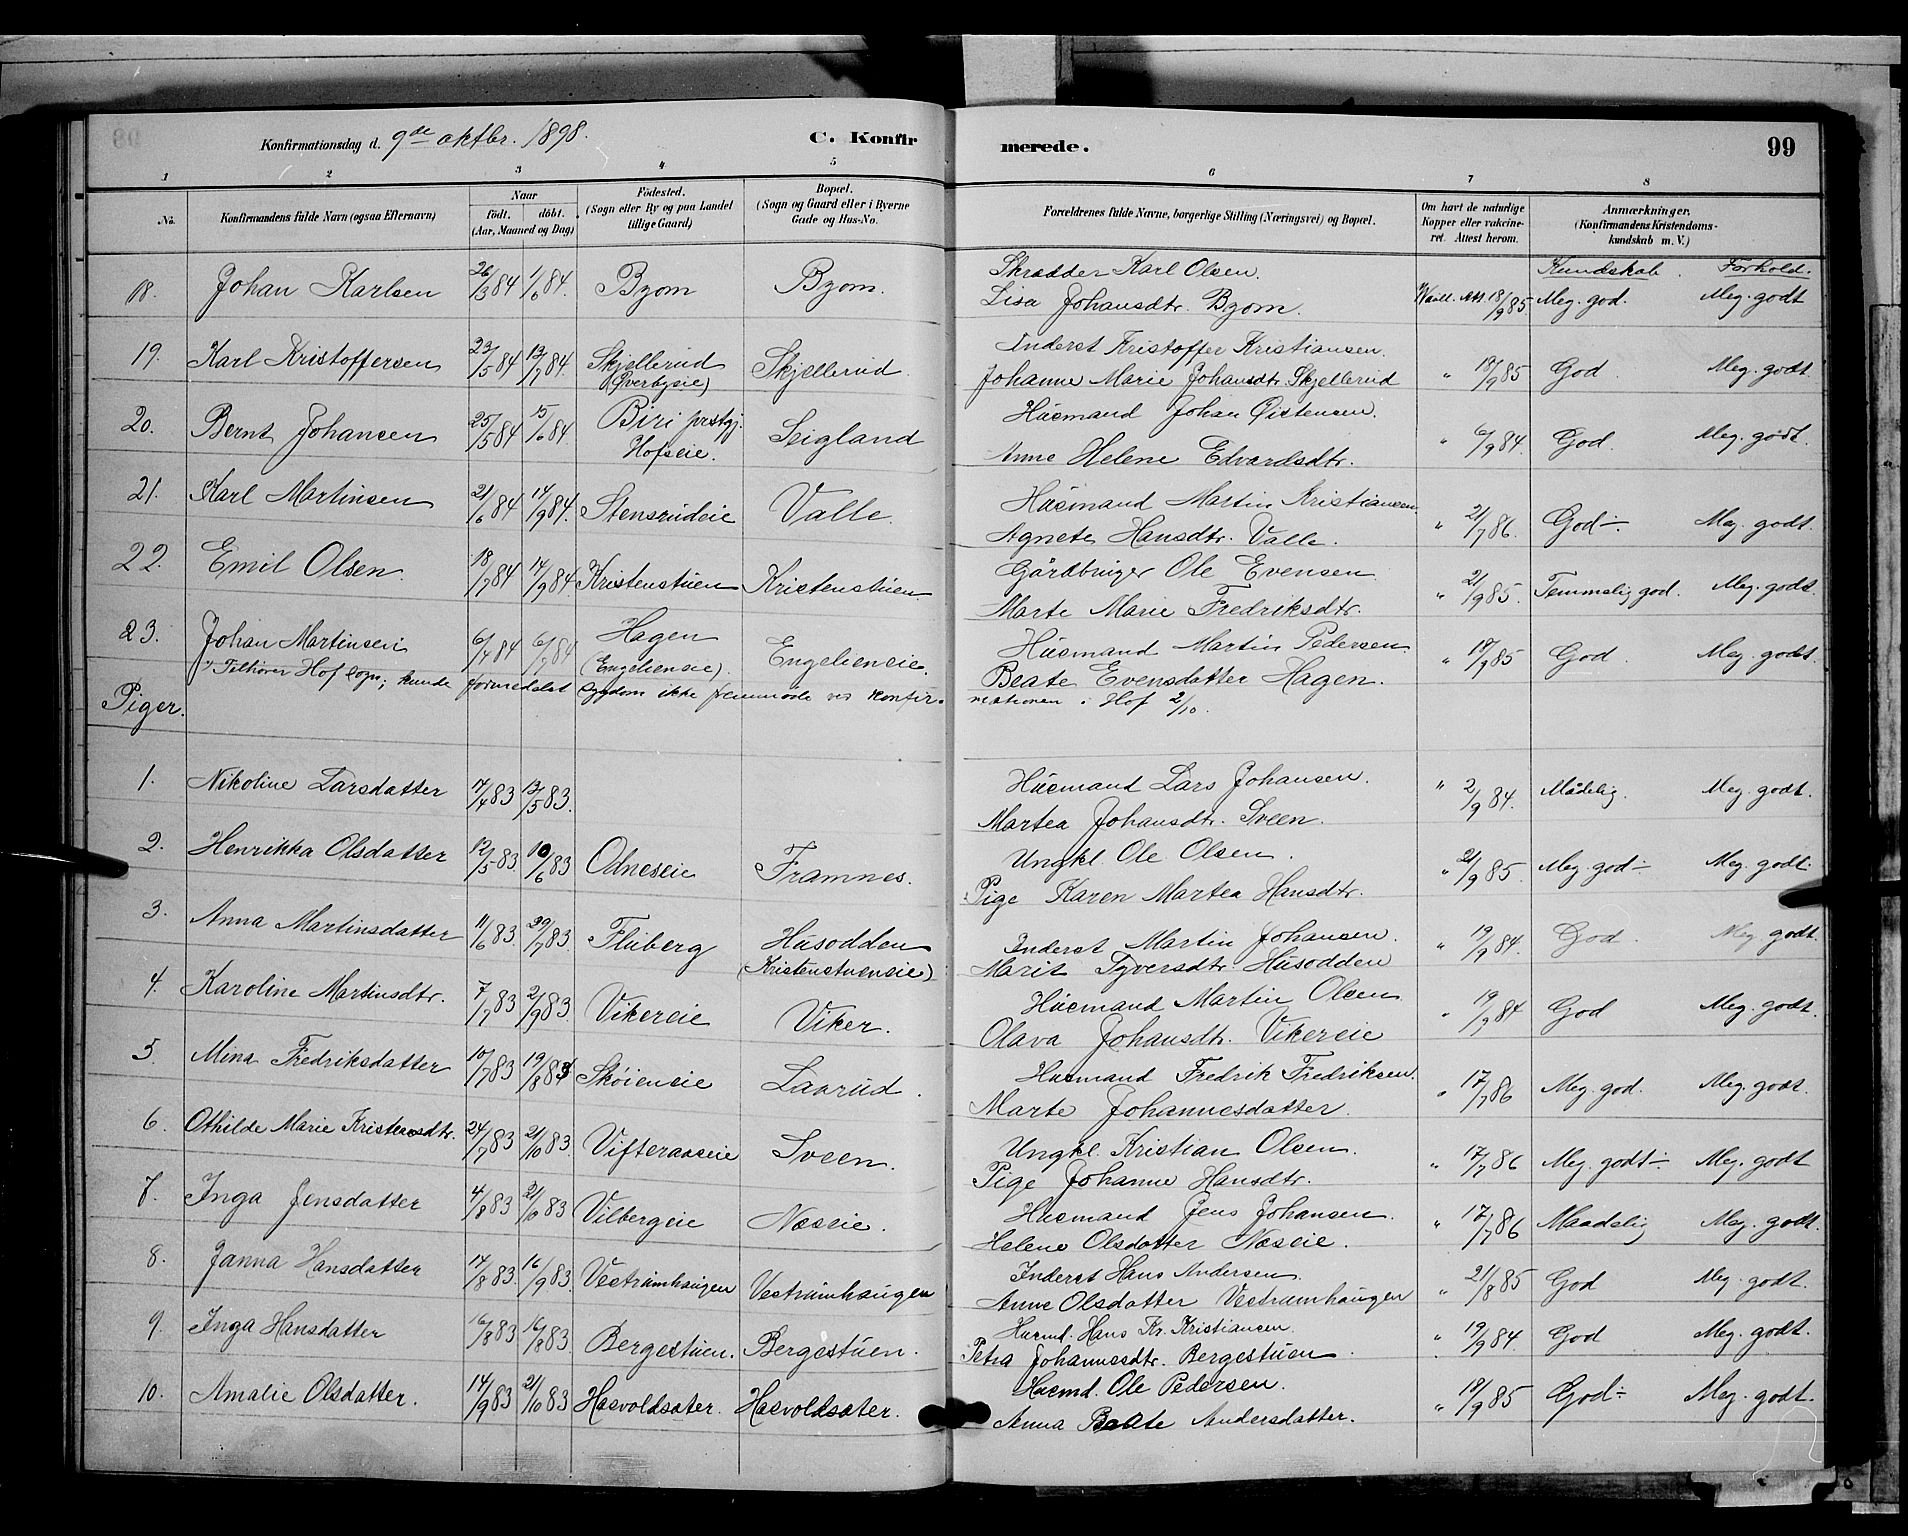 Konfirmationsdag d. 9de oktbr. 1898.
C. Konfir
merede.
99
1 2 3 4 5 6 7 8
No. Konfirmandens fulde Navn (ogsaa Efternavn) Naar født. døbt. (Aar, Maaned og Dag) Fødested. (Sogn eller By og paa Landet tillige Gaard) Bopæl. (Sogn og Gaard eller i Byerne Gade og Hus-No. Forældrenes fulde Navne, borgerlige Stilling (Næringsvei) og Bopæl. Om havt de naturlige Kopper eller vakcineret. Attest herom. Anmærkninger. (Konfirmandens Kristendomskundskab m. V.)
Kundskab. Forhold.
18. Johan Karlsen 26/3 84 1/6 84. Byom Byom. Skrædder Karl Olsen.
Lisa Johansdtr. Byom. Att. 18/9 85 Meg. god. Meg. godt
19. Karl Kristoffersen 23/5 84 13/7 84. Skjellerud Skjellerud Inderst Kristoffer Kristiansen.
Johanne Marie Johansdtr. Skjellerud " 18/9 85 God. Meg. godt.
20. Bernt Johansen 25/5 84 15/6 84. Biri prstgj. Hofseie. Seigland Husmand Johan Øistensen.
Anne Helene Edvardsdtr. " 6/9 84. God. Meg. godt.
21. Karl Martinsen 21/6 84 14/9 84. Stensrudeie Valle. Husmand Martin Kristiansen.
Agnete Hansdtr. Valle. " 21/7 86. God ÷. Meg. godt.
22. Emil Olsen. 18/7 84 14/9 84 Kristenstuen Kristenstuen. Gårdbruger Ole Evensen.
Marte Marie Fredriksdtr. " 21/9 85. Temmelig god. Meg. godt.
23. Johan Martinsen 6/4 84 6/7 84 Hagen (Engelieneie). Engelieneie. Husmand Martin Pedersen.
Beate Evensdatter Hagen. " 18/9 85 God. Meg. godt.
Tilhører Hof sogn; kunde formedelst sygdom ikke fremmøde ved konfirmationen i Hof 2/10.
Piger.
1. Nikoline Larsdatter 17/4 83 13/5 83. Husmand Lars Johansen.
Martea Johansdtr. Sveen. " 2/9 84. Mådelig. Meg. godt.
2. Henrikka Olsdatter 12/5 83. 10/6 83 Odneseie Framnes. Ungkl. Ole Olsen.
Pige Karen Martea Hansdtr. " 21/9 85. Meg. god ÷ Meg. godt.
3. Anna Martinsdatter 11/6 83. 29/7 83. Fluberg Husodden (Kristenstueneie) Inderst Martin Johansen.
Marit Syversdtr. Husodden " 19/9 84. God. Meg. godt.
4. Karoline Martinsdtr. 7/7 83 2/9 83. Vikereie Viker. Husmand Martin Olsen.
Olava Johansdtr. Vikereie " 19/9 84 God Meg. godt.
5. Mina Fredriksdatter 10/7 83 19/8 83 Skøieneie Laarud. Husmand Fredrik Fredriksen.
Marte Johannesdatter. " 17/7 86 Meg. god. Meg. godt.
6. Othilde Marie Kristensdtr. 24/7 83 21/10 83. Vifteraaseie Sveen. Ungkl. Kristian Olsen.
Pige Johanne Hansdtr. " 17/7 86 Meg. godt ÷. Meg. godt
7. Inga Jensdatter 4/8 83 21/10 83 Vilbergeie Næseie. Husmand Jens Johansen.
Helene Olsdatter Næseie. " 17/7 86 Maadelig Meg. godt.
8. Janna Hansdatter 14/8 83. 16/9 83. Vestrumhaugen Vestrumhaugen Inderst Hans Andersen.
Anne Olsdatter Vestrumhaugen " 21/8 85 God Meg. godt.
9. Inga Hansdatter 16/8 83 16/9 83 Bergestuen. Bergestuen. Husmd. Hans Kr. Kristiansen.
Petra Johannesdtr. Bergestuen. " 19/9 84. God Meg. godt.
10. Amalie Olsdatter. 14/9 83 21/10 83 Hasvoldsæter. Hasvoldsæter. Husmd. Ole Pedersen.
Anna Beate Andersdatter. " 18/9 85 God ÷ Meg. godt.